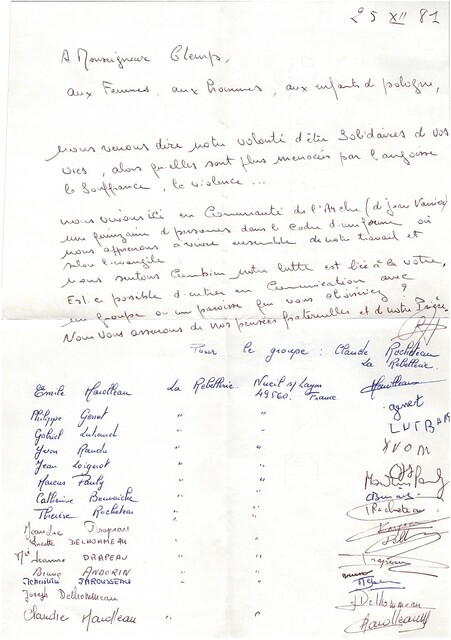 25 XII 81
A Monseigneur Glemps,
aux Femmes, aux hommes, aux enfants de pologne,
Nous venons dire notre volonté d'être Solidaires de vos
vies, alors qu'elles sont plus menacés par l'angoisse
la Souffrance, la violence...
nous vivons ici en Communauté de l'Arche (de jean Vanier)
une quinzaine de personnes dans le Cadre d'une ferme où
nous apprenons à vivre ensemble de notre travail et
selon l'évangile.
nous sentons Combien notre lutte est liée à la vôtre.
Est-ce possible d'entrer en Communication avec
un groupe ou une paroisse que vous choisirez ?
Nous vous assurons de nos pensées fraternelles et de notre Prière.
Pour le groupe : Claude Rocheteau
La Rebellerie.
Emile Marolleau La Rebellerie. Nueil s/Layon
49560. France
Philippe Genet " " genet
Gabriel Luhaud " "
Yvon Raudu " " YVOM
Jean Loignot " "
Marcus Pauly " "
Catherine " "
Thérèse Rocheteau " " TRocheteau
DELHOMMEAU
Mie Jeanne DRAPEAU "
Bruno ANDORIN " "
JAROUSSEAU " "
Joseph Delhommeau " J Delhommeau
Claudie Marolleau " " Marolleau